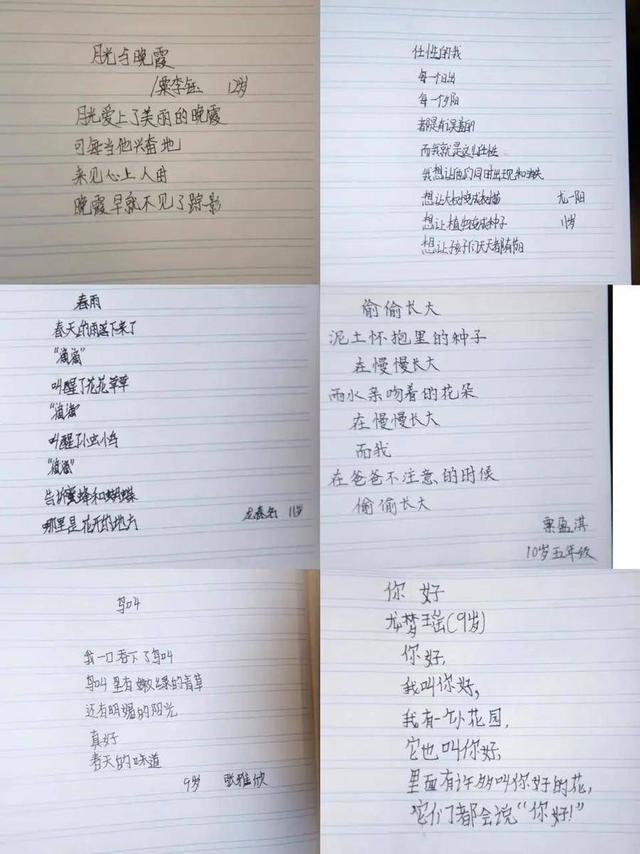 月光与晚霞
/粟李钰 12岁
月光爱上了美丽的晚霞
可每当他兴奋地
来见心上人时
晚霞早就不见了踪影
任性的我
每一个日出
每一个夕阳
都是有误差的
而我就是这么任性
我想让他们同时出现和消失
想让大树变成树苗
尤一阳
想让植物变成种子
11岁
想让孩子们天天都有阳
春雨
春天的雨落下来了
“滴滴”
叫醒了花花草草
“滴滴”
叫醒了小虫小鸟
“滴滴”
告诉蜜蜂和蝴蝶
哪里是花开的地方
11岁
偷偷长大
泥土怀抱里的种子
在慢慢长大
雨水亲吻着的花朵
在慢慢长大
而我
在爸爸不注意的时候
偷偷长大
粟盈淇
10岁五年级
鸟叫
我一口吞下了鸟叫
鸟叫里有嫩绿的青草
还有明媚的阳光
真好
春天的味道
9岁 欧雅欣
你好
尤梦瑶(9岁)
你好,
我叫你好,
我有一个小花园,
它也叫你好,
里面有许多叫你好的花,
它们都会说“你好!”